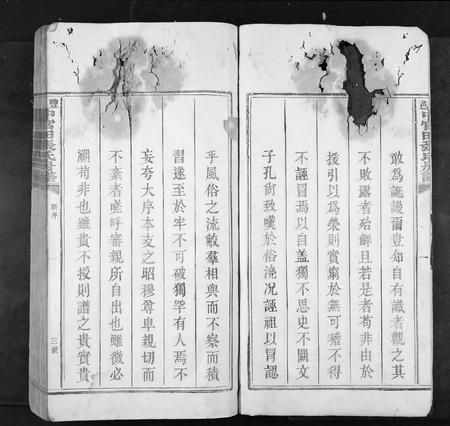 敢為誕謾爾豈知自有識者觀之其
不敗露者殆鮮且若是者苟非由於
援引以為榮則實窮於無可稽不得
不誣冒焉以自蓋獨不思史不闕文
子孔尚致嘆於俗澆况誣祖以冒認
乎風俗之流敝羣相與而不察而積
習遂至於牢不可破獨罕有人焉不
妄夸大序本支之昭穆尊卑親切而
不紊者嗟呼審親所自出也雖微必
溯苟非也雖貴不授則譜之貴實貴
新序
三號